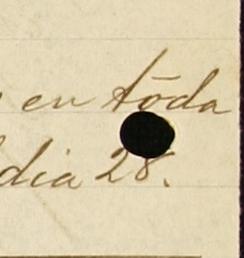 en tōda
dia 28.